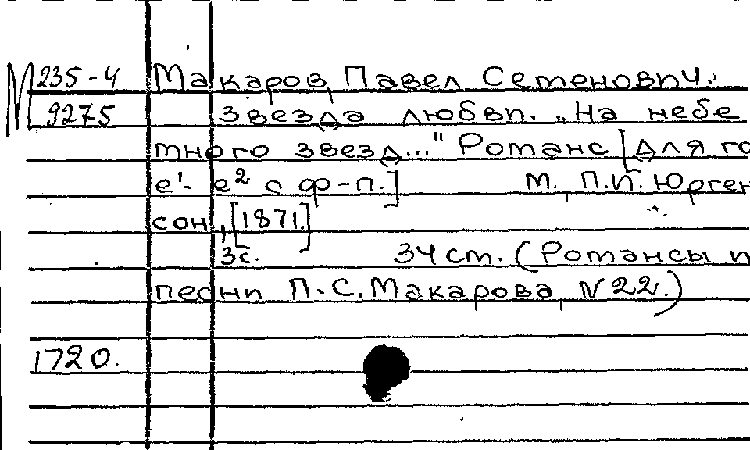 М 235-4 Макаров, Павел Семенович.
9275 Звезда любви. „На небе
много звезд..." Романс [для го
е¹- е² с ф-п.] М., П.И. Юрген
сон, [1871.]
3с. 34 см. (Романсы и
песни П.С. Макарова, N 22.)
1720.